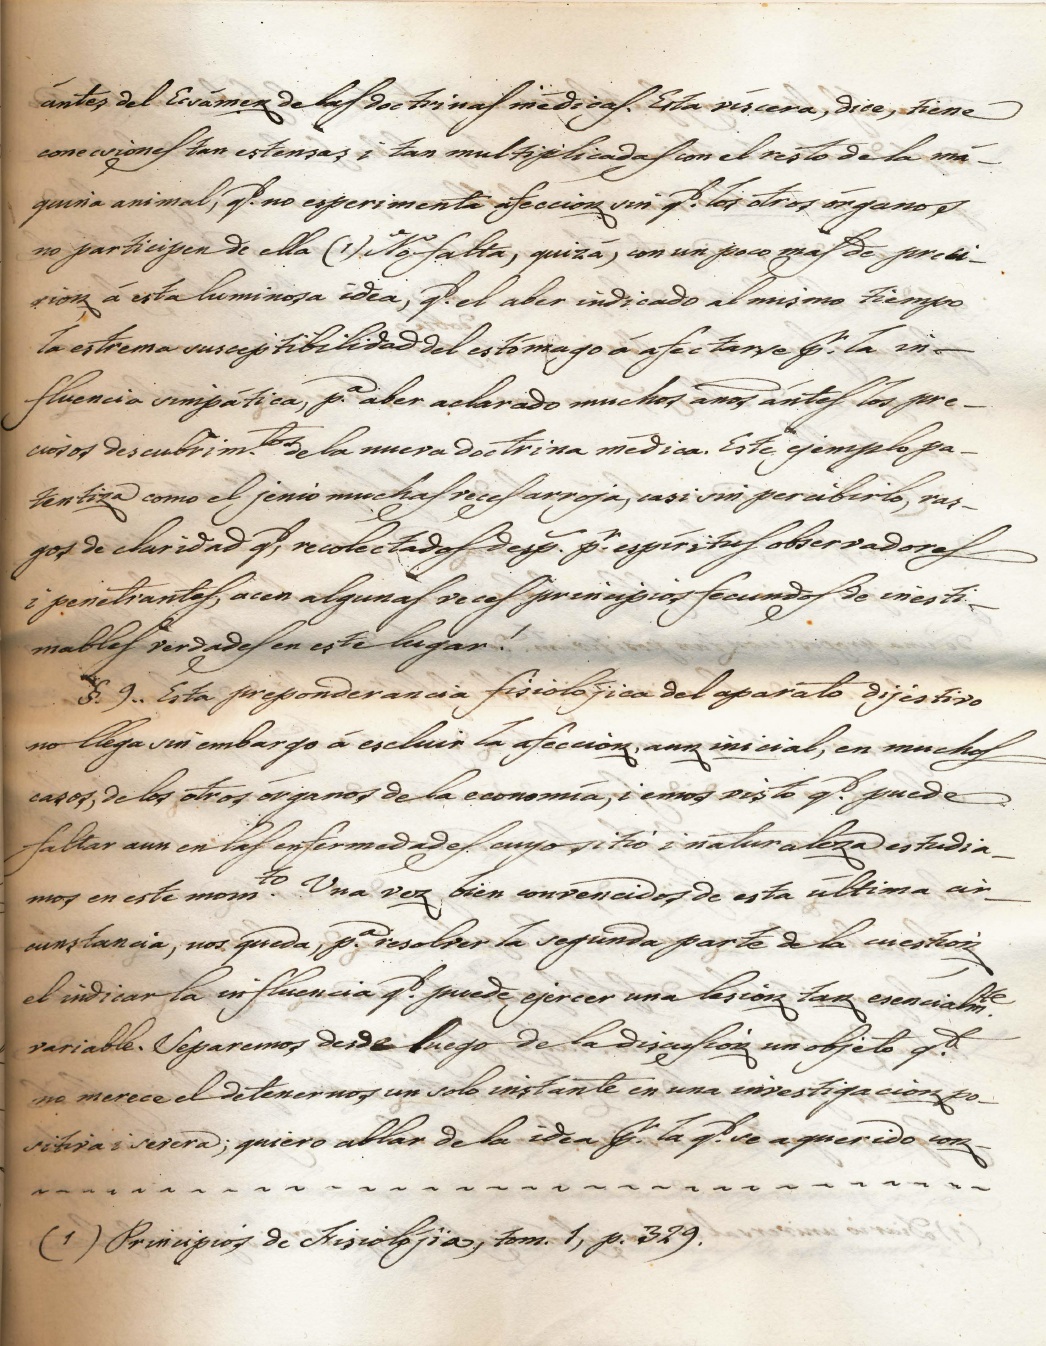 ántes del Ecsámen de las doctrinas médicas. Esta víscera, dice, tiene
conecsiones tan estensas i tan multiplicadas con el resto de la má-
quina animal, q.e no esperimenta afeccion sin q.e los otros órganos
no participen de ella (1) No falta, quizá, con un poco mas de preci-
sion á esta luminosa idea, q.e el aber indicado al mismo tiempo
la estrema susceptibilidad del estómago á afectarse p.r la in-
fluencia simpática, p.a aber aclarado muchos años ántes los pre-
ciosos descubrim.tos de la nueva doctrina médica. Este ejemplo pa-
tentiza como el jenio muchas veces arroja, casi sin percibirlo, ras-
gos de claridad q.e, recolectados desp.s p.r espíritus observadores
i penetrantes, acen algunas veces principios fecundos de inesti-
mables verdades en este lugar!
§. 9.. Esta preponderancia fisiolójica del aparato dijestivo
no llega sin embargo á escluir la afeccion, aun inicial, en muchos
casos, de los otros órganos de la economía, i emos visto q.e puede
faltar aun en las enfermedades cuyo sitio i naturaleza estudia-
mos en este mom.to Una vez bien convencidos de esta última cir-
cunstancia, nos queda, p.a resolver la segunda parte de la cuestion
el indicar la influencia q.e puede ejercer una lesion tan esencialm.te
variable. Separemos desde luego de la discusion un objeto q.e
no merece el detenernos un solo instante en una investigacion po-
sitiva i severa; quiero ablar de la idea p.r la q.e se a querido con-
(1) Principios de Fisiolojia, tom. 1, p. 329.